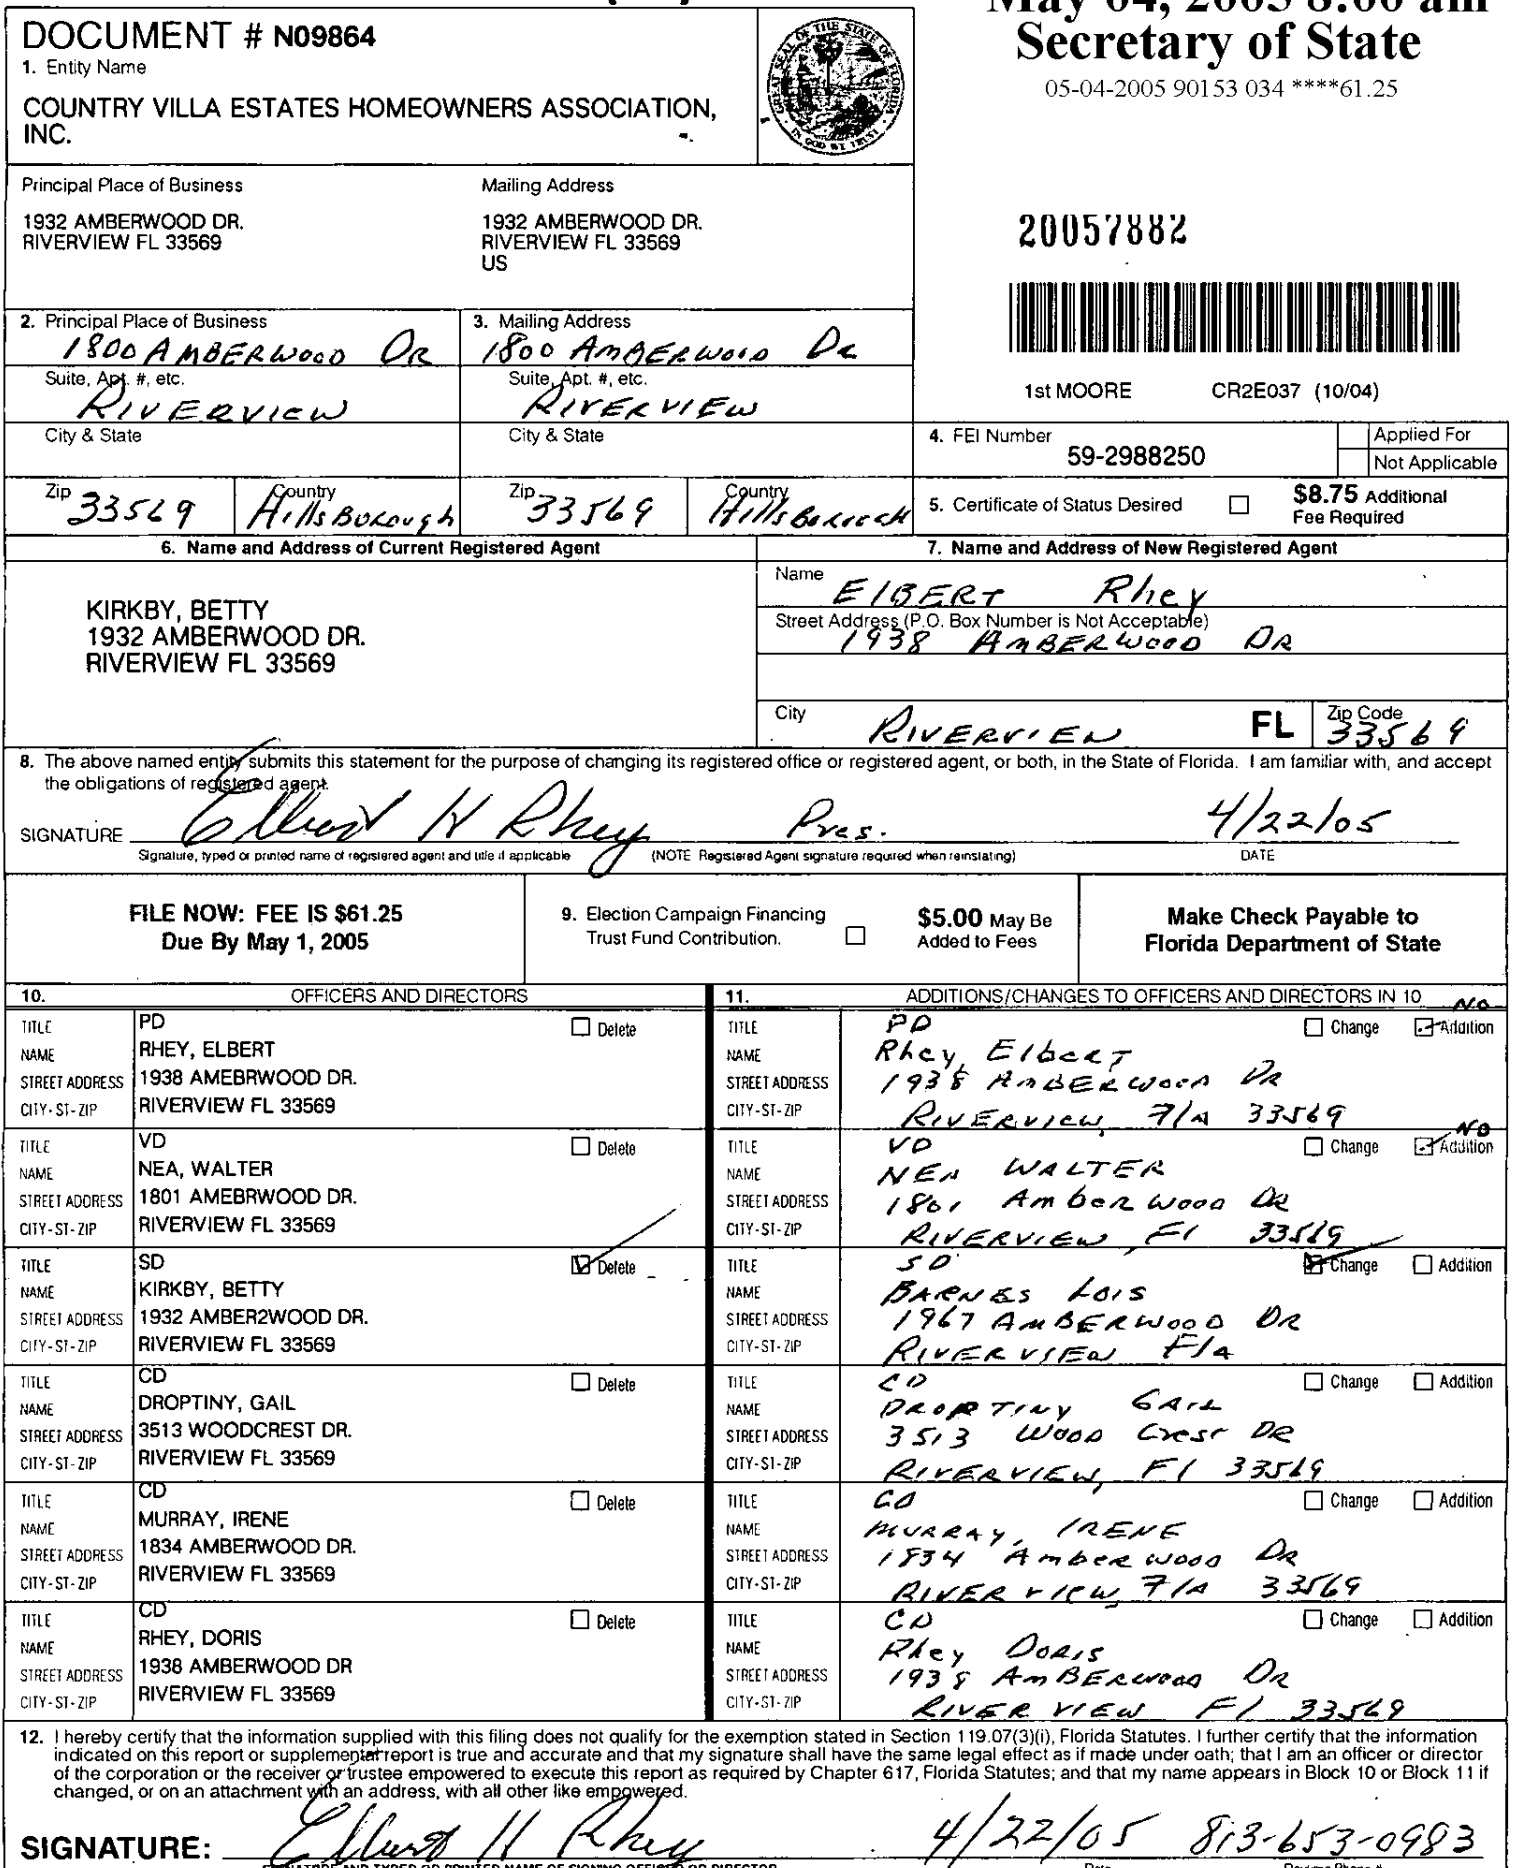 May 04, 2005 8:00 am
Secretary of State
05-04-2005 90153 034 ****61.25
DOCUMENT # N09864
1. Entity Name
COUNTRY VILLA ESTATES HOMEOWNERS ASSOCIATION,
INC.
GREAT SEAL OF THE STATE OF FLORIDA
IN GOD WE TRUST
Principal Place of Business
1932 AMBERWOOD DR.
RIVERVIEW FL 33569
Mailing Address
1932 AMBERWOOD DR.
RIVERVIEW FL 33569
US
20057882
1st MOORE CR2E037 (10/04)
2. Principal Place of Business
1800 AMBERWOOD DR
Suite, Apt. #, etc.
RIVERVIEW
City & State
Zip 33569 Country Hillsborough
3. Mailing Address
1800 AMBERWOOD DR
Suite, Apt. #, etc.
RIVERVIEW
City & State
Zip 33569 Country
4. FEI Number 59-2988250 Applied For
Not Applicable
5. Certificate of Status Desired $8.75 Additional
Fee Required
6. Name and Address of Current Registered Agent
KIRKBY, BETTY
1932 AMBERWOOD DR.
RIVERVIEW FL 33569
7. Name and Address of New Registered Agent
Name ElBERT Rhey
Street Address (P.O. Box Number is Not Acceptable)
1938 AMBERWOOD DR
City RIVERVIEW FL Zip Code 33569
8. The above named entity submits this statement for the purpose of changing its registered office or registered agent, or both, in the State of Florida. I am familiar with, and accept
the obligations of registered agent.
SIGNATURE Elbert H Rhey Pres. 4/22/05
Signature, typed or printed name of registered agent and title if applicable (NOTE Registered Agent signature required when reinstating) DATE
FILE NOW: FEE IS $61.25
Due By May 1, 2005
9. Election Campaign Financing
Trust Fund Contribution.
$5.00 May Be
Added to Fees
Make Check Payable to
Florida Department of State
10. OFFICERS AND DIRECTORS
TITLE PD Delete
NAME RHEY, ELBERT
STREET ADDRESS 1938 AMEBRWOOD DR.
CITY-ST-ZIP RIVERVIEW FL 33569
TITLE VD Delete
NAME NEA, WALTER
STREET ADDRESS 1801 AMEBRWOOD DR.
CITY-ST-ZIP RIVERVIEW FL 33569
TITLE SD Delete
NAME KIRKBY, BETTY
STREET ADDRESS 1932 AMBER2WOOD DR.
CITY-ST-ZIP RIVERVIEW FL 33569
TITLE CD Delete
NAME DROPTINY, GAIL
STREET ADDRESS 3513 WOODCREST DR.
CITY-ST-ZIP RIVERVIEW FL 33569
TITLE CD Delete
NAME MURRAY, IRENE
STREET ADDRESS 1834 AMBERWOOD DR.
CITY-ST-ZIP RIVERVIEW FL 33569
TITLE CD Delete
NAME RHEY, DORIS
STREET ADDRESS 1938 AMBERWOOD DR
CITY-ST-ZIP RIVERVIEW FL 33569
11. ADDITIONS/CHANGES TO OFFICERS AND DIRECTORS IN 10
NO
TITLE PD Change Addition
NAME Rhey, Elbert
STREET ADDRESS 1938 AMBERWOOD DR
CITY-ST-ZIP RIVERVIEW, Fla 33569
NO
TITLE VD Change Addition
NAME NEA WALTER
STREET ADDRESS 1801 Amber Wood DR
CITY-ST-ZIP RIVERVIEW, Fl 33569
TITLE SD Change Addition
NAME BARNES Lois
STREET ADDRESS 1967 AMBERWOOD DR
CITY-ST-ZIP RIVERVIEW Fla
TITLE CD Change Addition
NAME DROPTINY GAIL
STREET ADDRESS 3513 Wood Crest DR
CITY-ST-ZIP RIVERVIEW, Fl 33569
TITLE CD Change Addition
NAME MURRAY, IRENE
STREET ADDRESS 1834 Amber wood DR
CITY-ST-ZIP RIVERVIEW, Fla 33569
TITLE CD Change Addition
NAME Rhey Doris
STREET ADDRESS 1938 AmBERwood DR
CITY-ST-ZIP RIVER VIEW Fl 33569
12. I hereby certify that the information supplied with this filing does not qualify for the exemption stated in Section 119.07(3)(i), Florida Statutes. I further certify that the information
indicated on this report or supplemental report is true and accurate and that my signature shall have the same legal effect as if made under oath; that I am an officer or director
of the corporation or the receiver or trustee empowered to execute this report as required by Chapter 617, Florida Statutes; and that my name appears in Block 10 or Block 11 if
changed, or on an attachment with an address, with all other like empowered.
SIGNATURE: Elbert H Rhey 4/22/05 813-653-0983